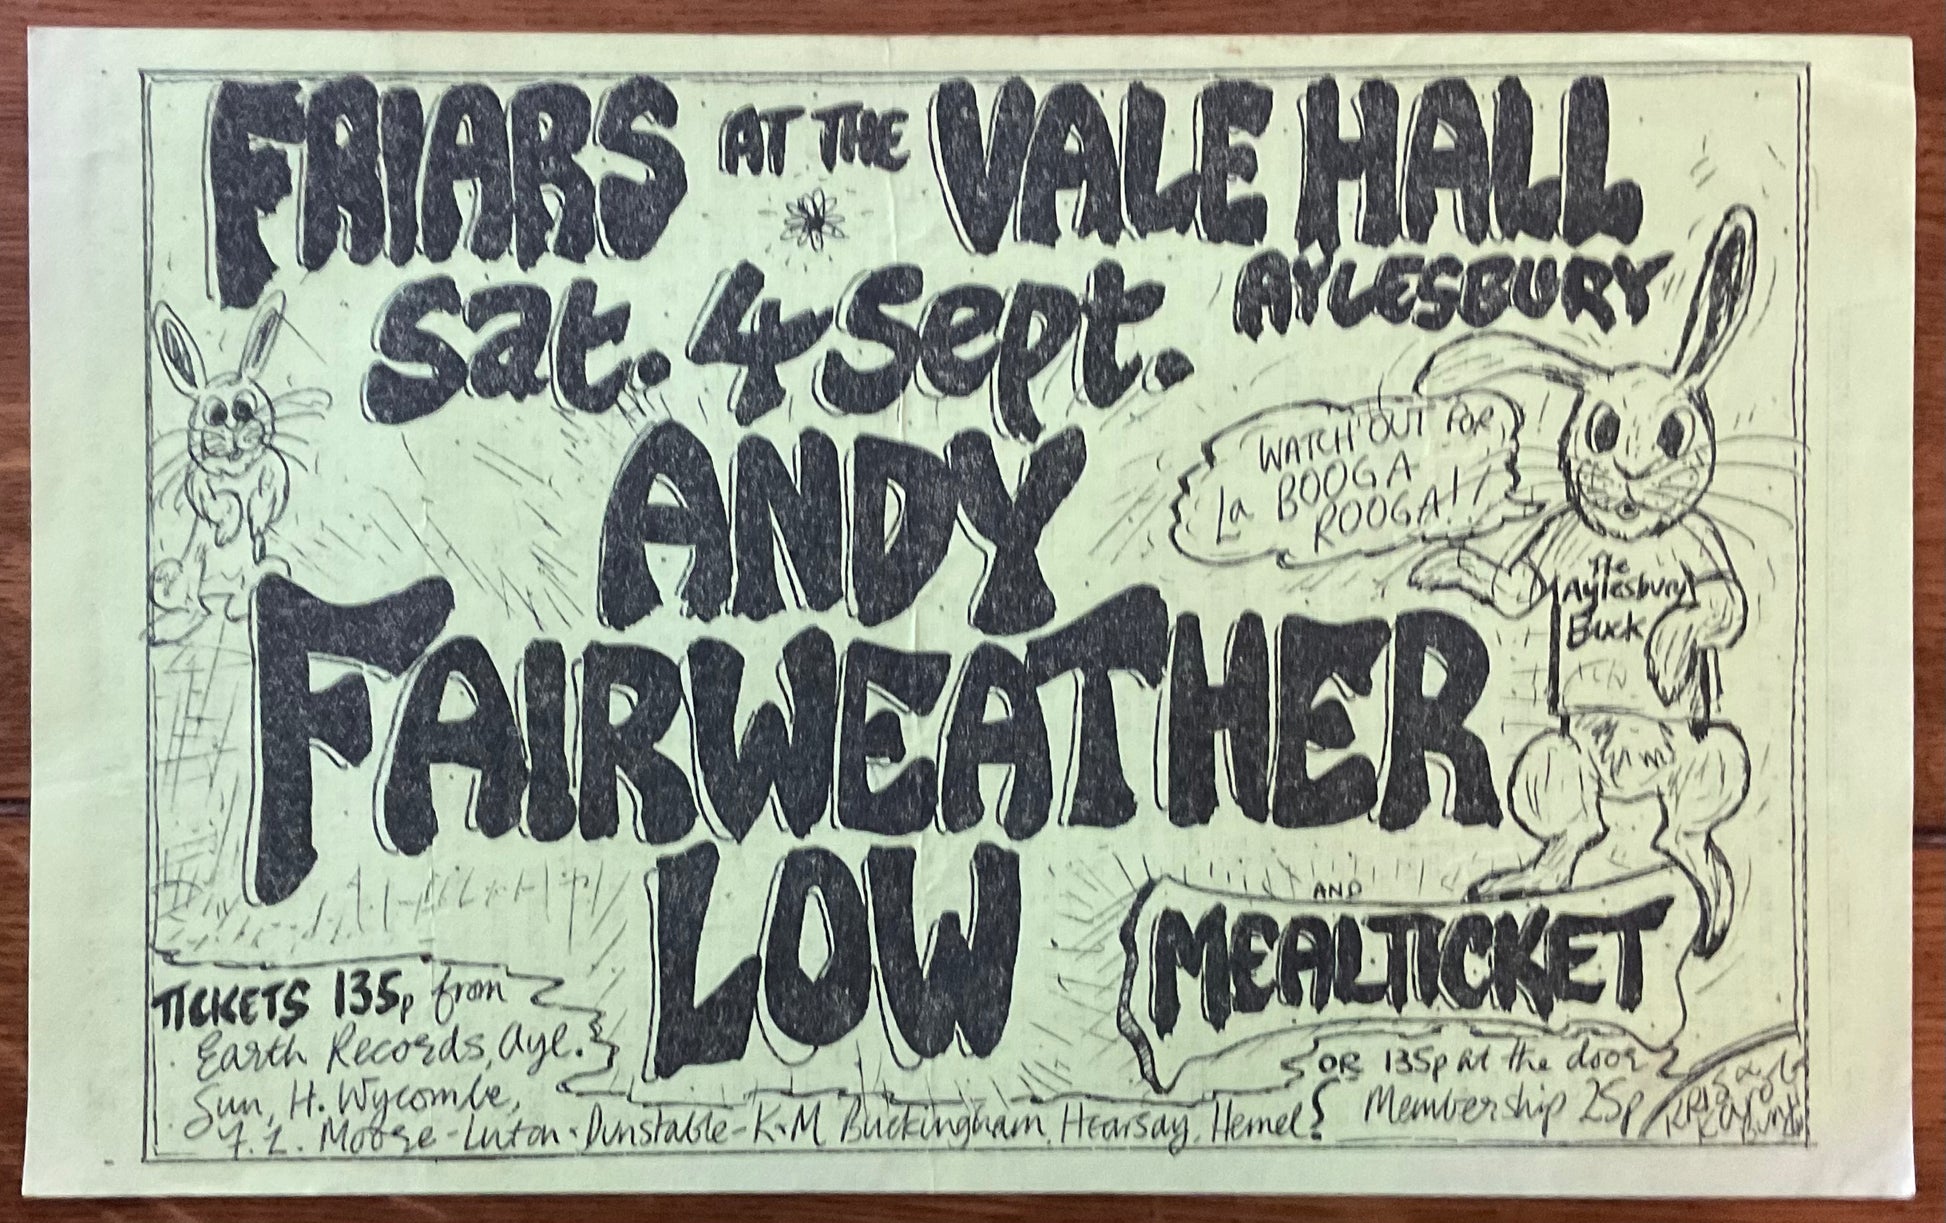 FRIARS AT THE VALE HALL
AYLESBURY
Sat. 4 Sept.
ANDY
FAIRWEATHER
LOW
WATCH OUT FOR
La BOOGA
ROOGA!!
The
Aylesbury
Buck
AND
MEALTICKET
TICKETS 135p from
Earth Records, Aye.
Sun, H. Wycombe,
F. L. Moore - Luton · Dunstable - K·M Buckingham, Hearsay, Hemel
OR 135p at the door
Membership 25p
KRIS